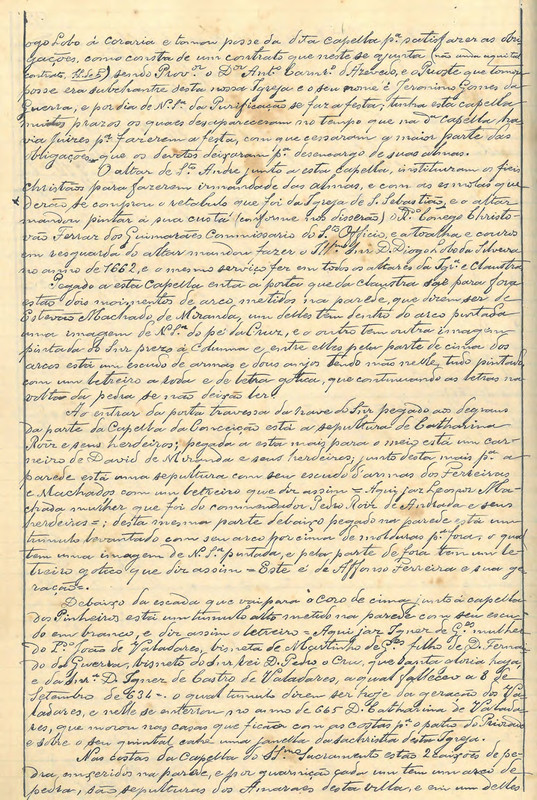 ogo Lobo á Coraria e tomou posse da dita capella pª satisfazer as obri-
gações, como consta de um contrato que neste se ajunta (não anda aqui tal
contrato. ) sendo Provºr o Dºr Antº Carnrº d'Azevedo, e o Preste que tomou
posse era subchantre desta nossa Igreja e o seu nome é Jeronimo Gomes da
Guerra, e por dia de Nª Sª da Purificação se faz a festa, tinha esta capella
muitos prazos os quaes desappareceram no tempo que na dª capella ha-
via juizes pª fazerem a festa, com que cessaram a maior parte das
obrigações que os devotos deixaram pª desencargo de suas almas.
O altar de Stº André junto a esta Capella, instituiram os fieis
christãos para fazerem irmandade das almas, e com as esmolas que
derão se comprou o retabulo que foi da Igreja de S. Sebastião, e o altar
mandou pintar á sua custa (conforme nos disserão) o Rº Conego Christo-
vão Ferraz dos Guimarães Commissario do Stº Officio, e a toalha e couro
em resguardo do altar mandou fazer o Illmº Snr D. Diogo Lobo da Silveira
no anno de 1662, e o mesmo serviço fez em todos os altares da Igrª e Claustra
Pegado a esta Capella está a porta que da claustra sae para fora
estão dois moimentos de arco, metidos na parede, que dizem ser de
Estevão Machado, de Miranda, um delles tem dentro do arco pintada
uma imagem de Nª Sª do pé da Cruz, e o outro tem outra imagem
pintada do Snr prezo á Columna e entre elles pela parte de cima dos
arcos está um escudo de armas e dous anjos tendo mão nelle, tudo pintado
com um letreiro á roda e de letra gotica, que continuando as letras na
volta da pedra se não deixão ler.
Ao entrar da porta travessa da nave do Sul pegado ao degrau
da parte da Capella da Conceição está a sepultura de Catharina
Roiz e seus herdeiros; pegada a esta mais para o meio está um car-
neiro de David de Miranda e seus herdeiros; junto desta mais pª a
parede está uma sepultura com seu escudo d'armas dos Ferreiras
e Machados com um letreiro que diz assim = Aqui jaz Leonor Ma-
chada mulher que foi do commendador Pedro Roiz de Andrada e seus
herdeiros =; desta mesma parte debaixo pegado na parede está um
tumulo levantado com seu arco por cima de molduras pª fora, o qual
tem uma imagem de Nª Sª pintada, e pela parte de fora tem um le-
treiro gotico que diz assim = Este é de Affonso Ferreira e sua ge-
ração =.
Debaixo da escada que vai para o Coro de cima junto á capella
dos Pinheiros está um tumulo alto metido na parede com seu escu-
do em branco, e diz assim o letreiro = Aqui jaz Ignez de mulher
de Lº João de Valadares, bisneta de Martinho de filho de D. Fernan-
do da Guerra, bisneto do Snr Rei D. Pedro o Cru, que Santa Gloria haja,
e da Snrª D. Ignez de Castro de Valadares, a qual falleceo a 8 de
Setembro de 634 =. o qual tumulo dizem ser hoje da geração dos Va-
ladares, e nelle se enterrou no anno de 665 D. Catharina de Valada-
res, que morou nas casas que ficão com as costas pª o patio do Priorado
e sobre o seu quintal cahe uma janella da sachristia desta Igreja.
Nas costas da Capella do SSmº Sacramento estão 2 caixões de pe-
dra, mgeridos na parede, e por guarnição cada um tem um arco de
pedra, são sepulturas dos Amaraes desta villa, e em um delles